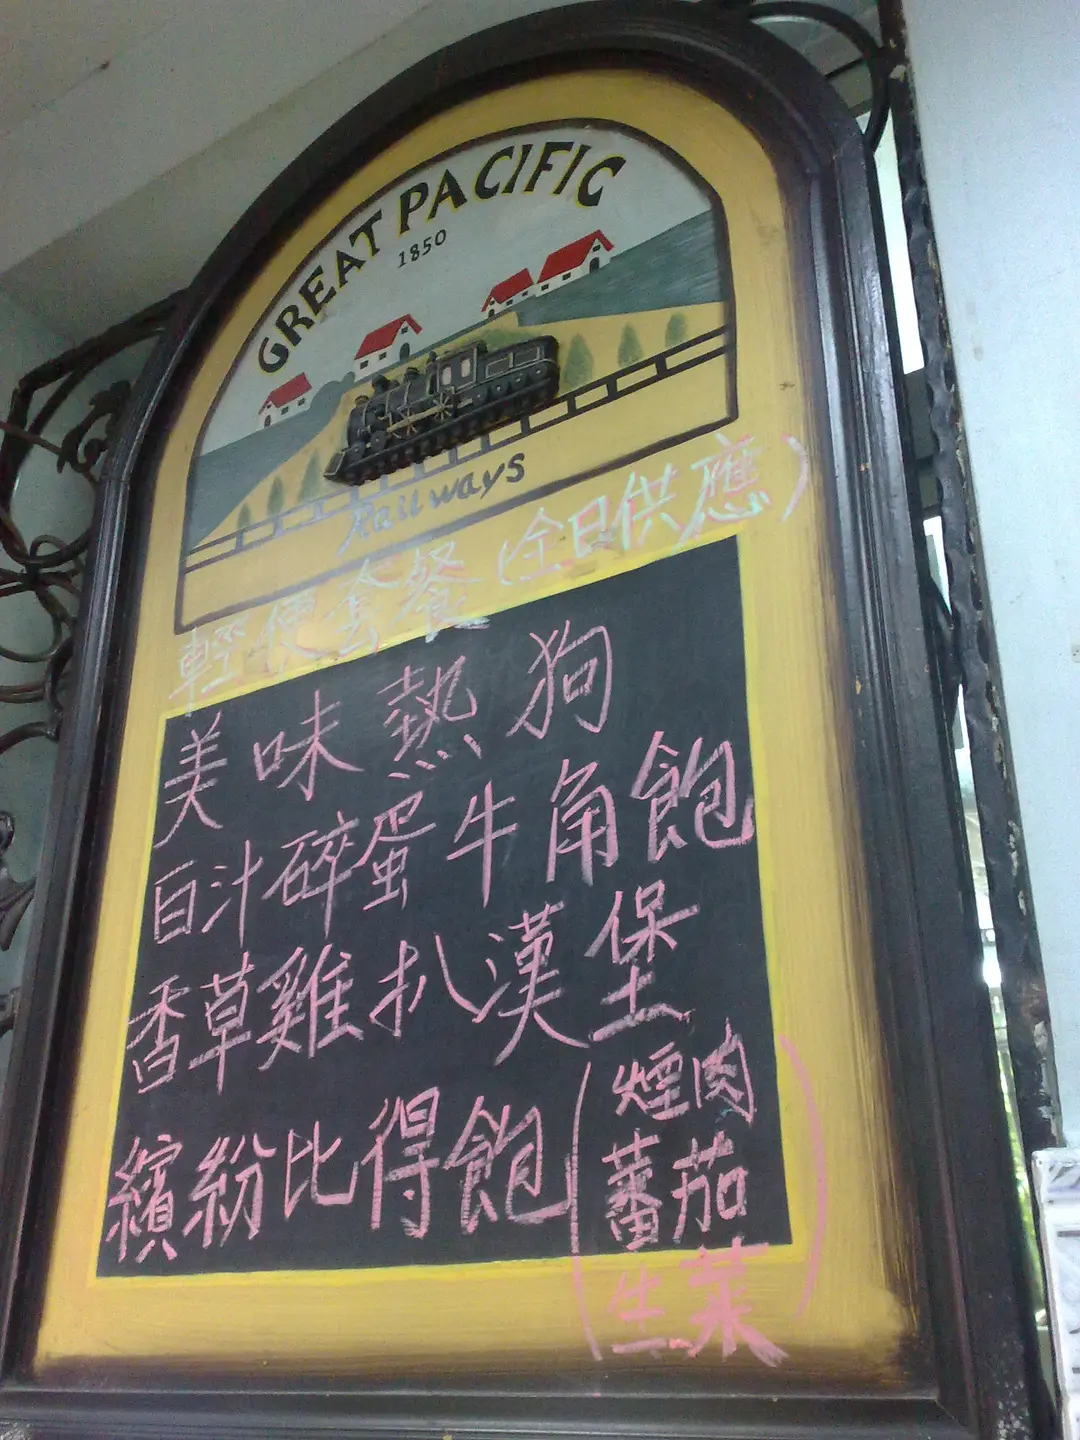 GREAT PACIFIC
1850
Railways
輕便套餐(全日供應)
美味熱狗
白汁碎蛋牛角飽
香草雞扒漢堡
繽紛比得飽(煙肉
蕃茄
生菜)